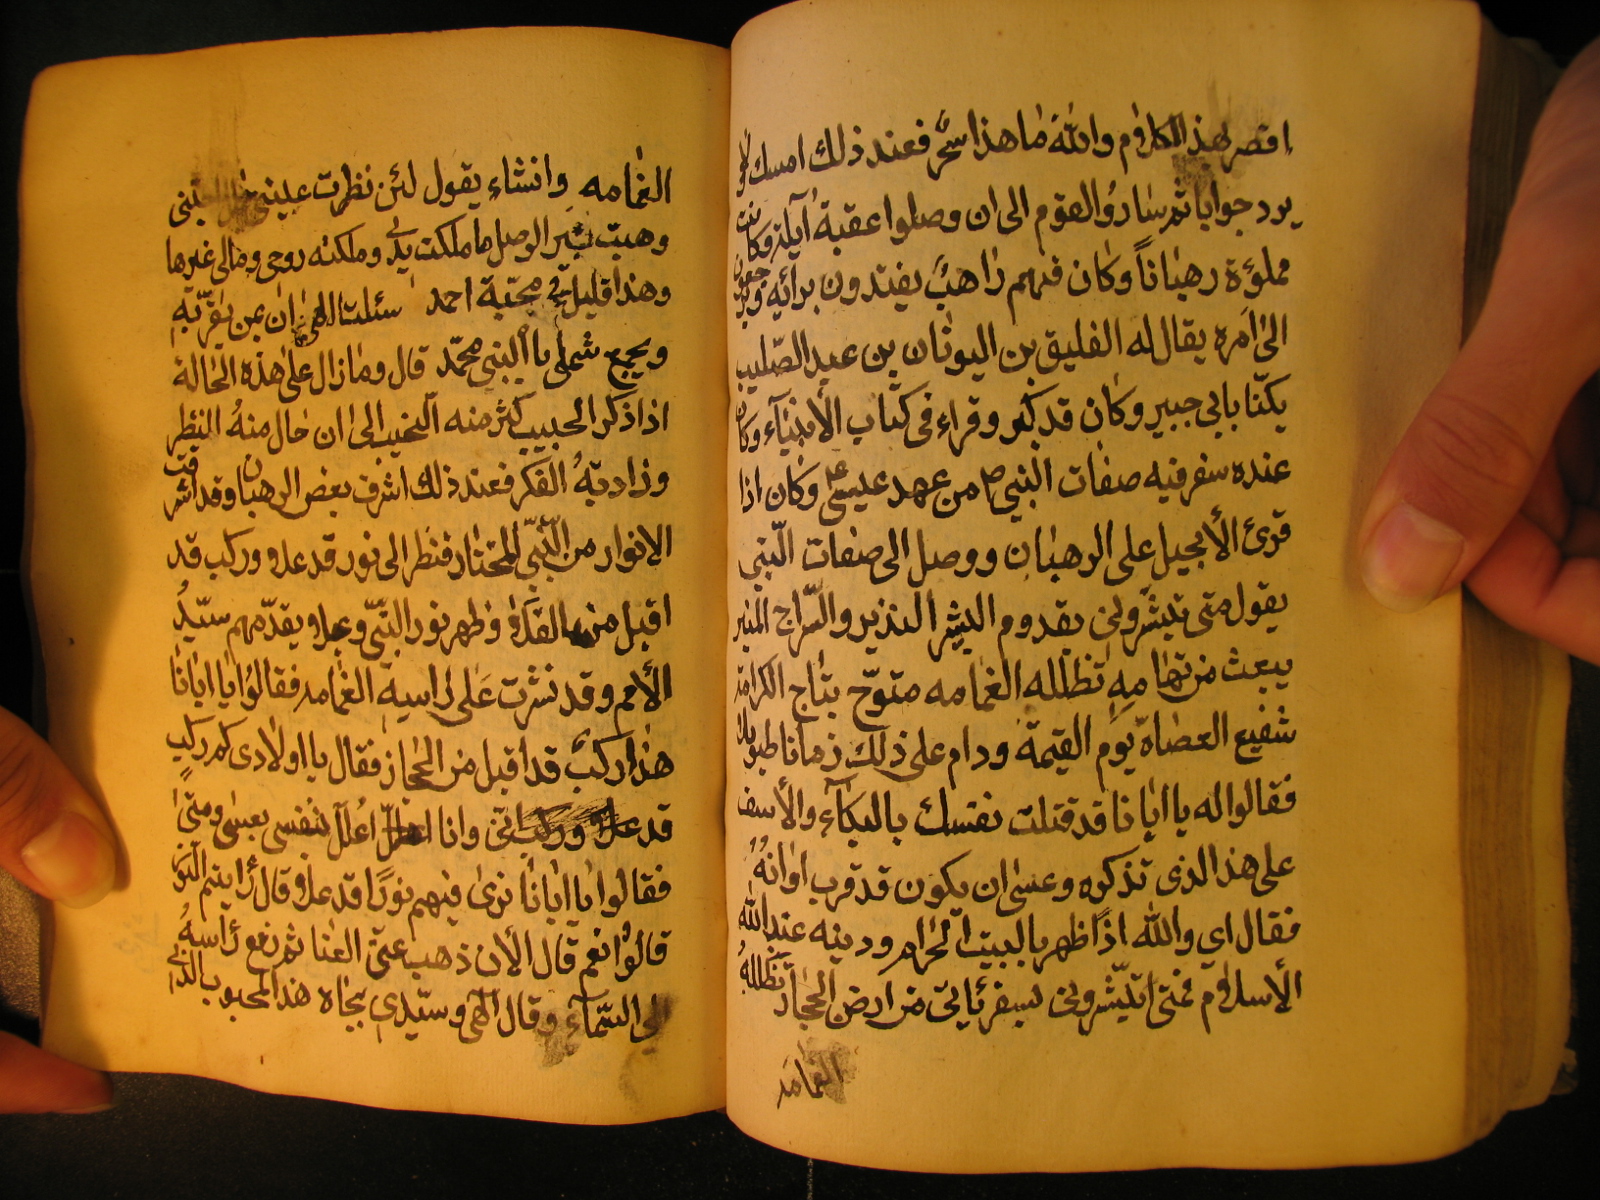 اقصر لهذا الكلام والله ما هذا سحر فعند ذلك امسك ولم
يرد جوابا ثم ساروا القوم الى ان وصلوا عقبة آيلة وكانت
مملؤة رهباناً وكان فيهم راهبٌ يقتدون برائه ويرجعون
الى امره يقال له الفليق بن اليونان بن عبد الصّليب
يكنّا بابي جبير وكان قد كبر وقراء في كتاب الأنبيآء وكان
عنده سفر فيه صفات النبي ص من عهد عيسى ع وكان اذا
قرئ الأنجيل على الرهبان ووصل الى صفات النّبي
يقول متى تبشّروني بقدوم البشير النذير والسّراج المنير
يبعث من تهامه تظلله الغمامه متوّج بتاج الكرامة
شفيع العصاة يوم القيمة ودام على ذلك زمانا طويلا
فقالوا له يا ابانا قد قتلت نفسك بالبكآء والأسف
على هذا الذي تذكره وعسى ان يكون قد قرب اوانهُ
فقال اي والله اذاً ظهر بالبيت الحرام ودينه عند الله
الأسلام فمتى تبشّروني بسفر ياتي من ارض الحجاز تظللهُ
الغمامه
الغمامه وانشاء يقول لئن نظرت عيني
وهبت بشير الوصل ما ملكت يدي وملكته روحي ومالي غيرها
وهذا قليل في محبّة احمد سئلت الهي ان يمن بقربّه
ويجمع شملي بالنبي محمّد قال وما زال على هذه الحالة
اذا ذكر الحبيب كثر منه النحيب الى ان حال منهُ النظر
وزاد بهُ الفكر فعند ذلك اشرف بعض الرهبان وقد اشرقت
الانوار من النّبي المختار فنظر الى نور قد علا وركب قد
اقبل من الفلاة وظهر نور النّبي وعلا ويقدّمهم سيّدُ
الأمم وقد نشرت على راسه الغمامه فقالوا يا ابانا
هذا ركبٌ قد اقبل من الحجاز فقال يا اولادي كم ركبٍ
قد علا واتى وانا اعلل نفسي بعسى ومتى
فقالوا يا ابانا نرى فيهم نورًا قد علا وقال رايتم النور
قالوا نعم قال الأن ذهب عنّي العنا ثم رفع راسهُ
الى السّمآء وقال الهي وسيّدي بجاه هذا المحبوب بالذي